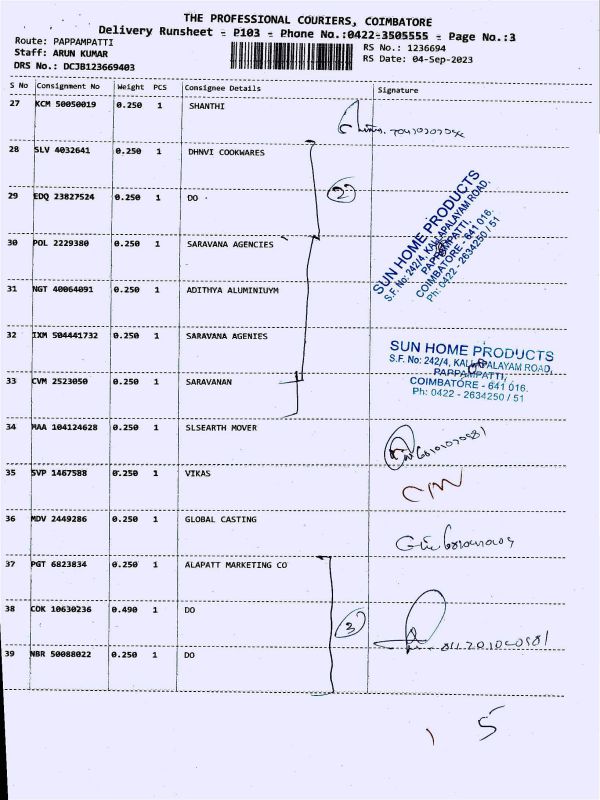 THE PROFESSIONAL COURIERS, COIMBATORE
Delivery Runsheet - P103 - Phone No.:0422-3505555 - Page No.:3
Route: PAPPAMPATTI
Staff: ARUN KUMAR
DRS No.: DCJB123669403
RS No.: 1236694
RS Date: 04-Sep-2023
S No Consignment No Weight PCS Consignee Details Signature
27 KCM 50050019 0.250 1 SHANTHI
28 SLV 4032641 0.250 1 DHNVI COOKWARES
29 EDQ 23827524 0.250 1 DO
2
SUN HOME PRODUCTS
S.F. No: 242/4, KALLAPALAYAM ROAD,
PAPPAMPATTI,
COIMBATORE - 641 016.
Ph: 0422 - 2634250 / 51
30 POL 2229380 0.250 1 SARAVANA AGENCIES
31 NGT 40064091 0.250 1 ADITHYA ALUMINIUYM
32 IXM 504441732 0.250 1 SARAVANA AGENIES
SUN HOME PRODUCTS
S.F. No: 242/4, KALLAPALAYAM ROAD,
PAPPAMPATTI,
COIMBATORE - 641 016.
Ph: 0422 - 2634250 / 51
33 CVM 2523050 0.250 1 SARAVANAN
34 MAA 104124628 0.250 1 SLSEARTH MOVER
35 SVP 1467588 0.250 1 VIKAS
36 MDV 2449286 0.250 1 GLOBAL CASTING
37 PGT 6823834 0.250 1 ALAPATT MARKETING CO
38 COK 10630236 0.490 1 DO
3
39 NBR 50088022 0.250 1 DO
5